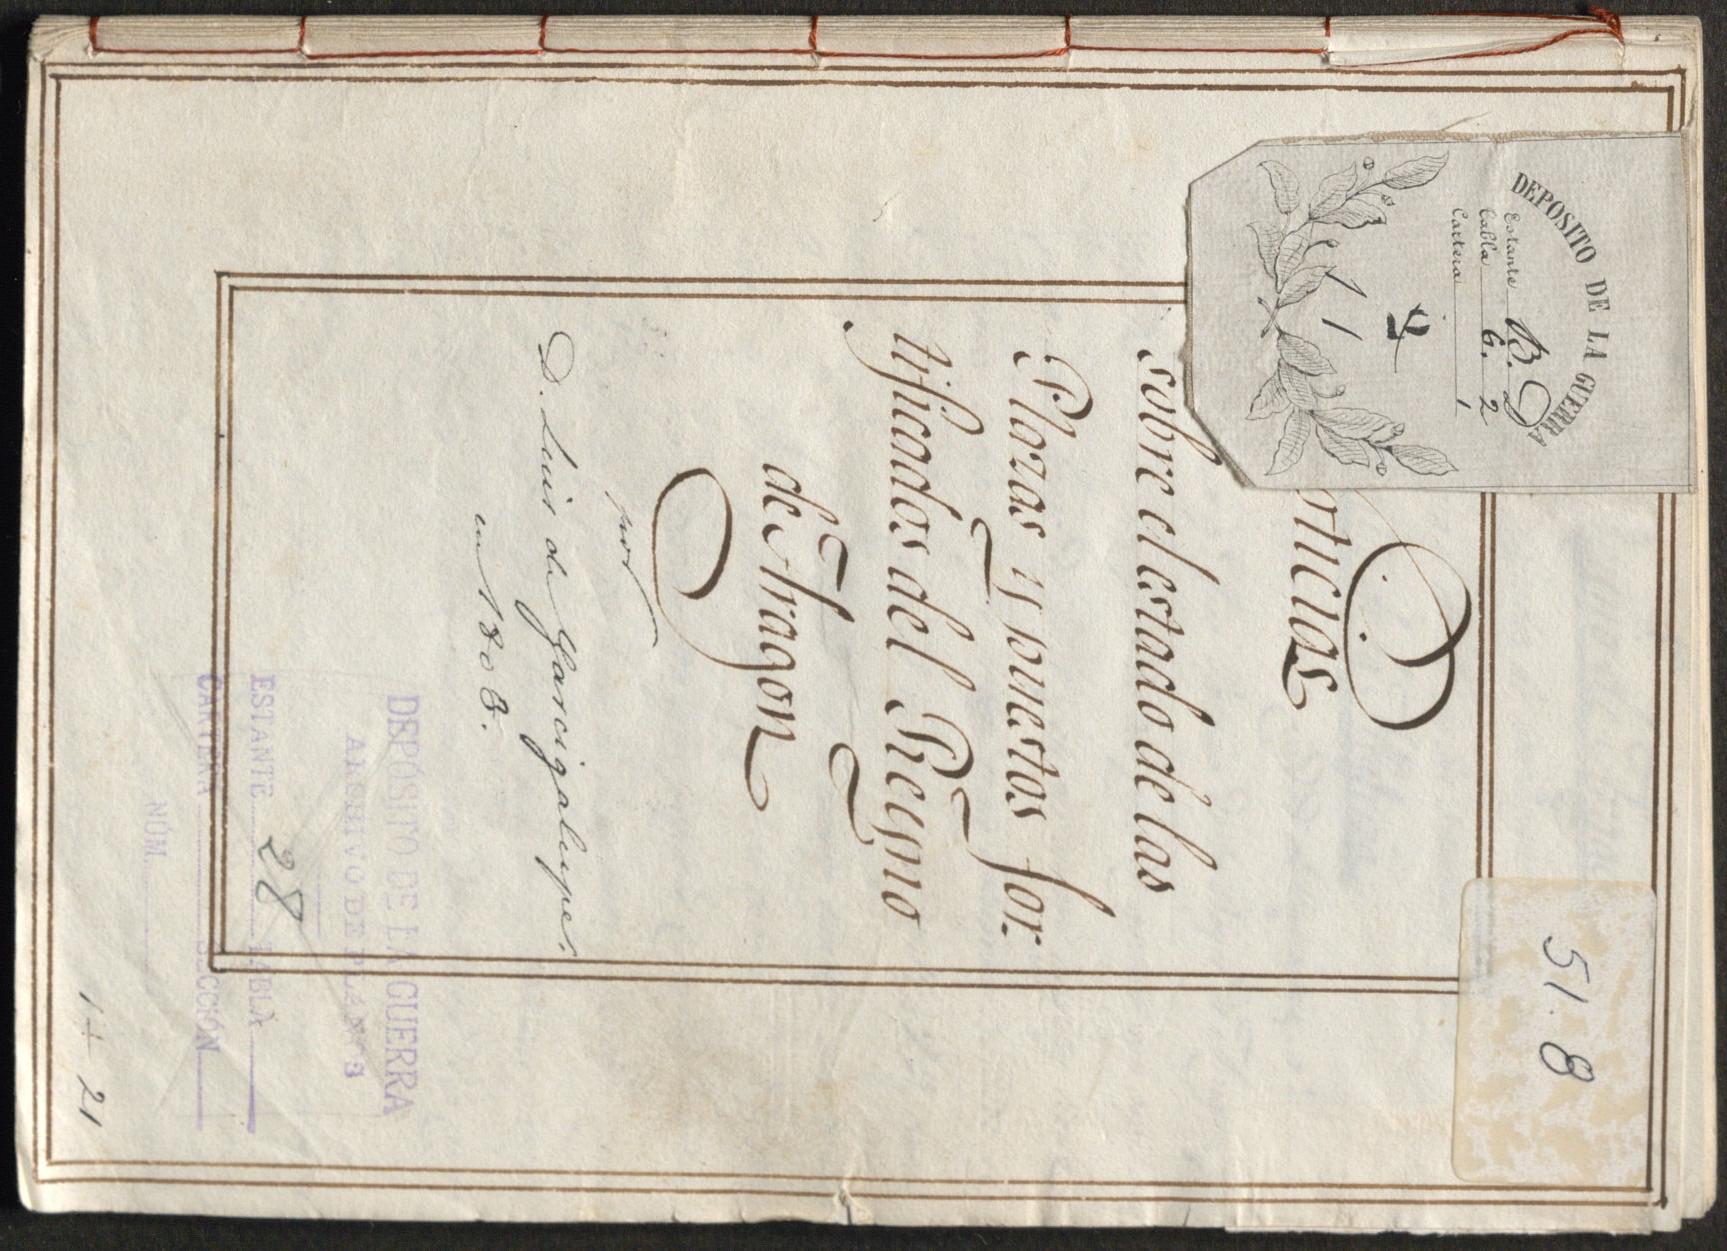 DEPOSITO DE LA GUERRA
Estante B. D
Tabla 6. 2
Cartera 1
11
sobre el estado de las
Plazas y puestos for-
tificados del Reyno
de Aragon
por
D. Luis de
en 1803.
51.8
DEPÓSITO DE LA GUERRA
ARCHIVO DE PLANOS
ESTANTE 28 TABLA
CARTERA SECCIÓN
NÚM.
1+21